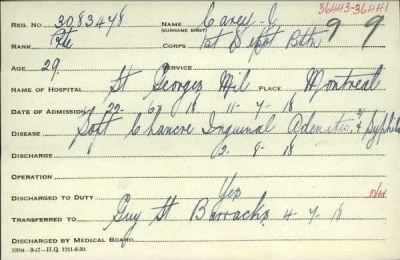 36443-36441
REG. NO. 3083478 NAME Carey - J.
(SURNAME FIRST)
RANK Pte CORPS 1st Depot Btn 99
AGE 29. SERVICE
NAME OF HOSPITAL St Georges Mil PLACE Montreal
DATE OF ADMISSION 22- 18 11-7-18
DISEASE Soft Chancre Inguinal Adenitis & Syphilis
DISCHARGE 12-8-18
OPERATION
DISCHARGED TO DUTY Yes
TRANSFERRED TO Guy St Barracks 4-7-18
DISCHARGED BY MEDICAL BOARD